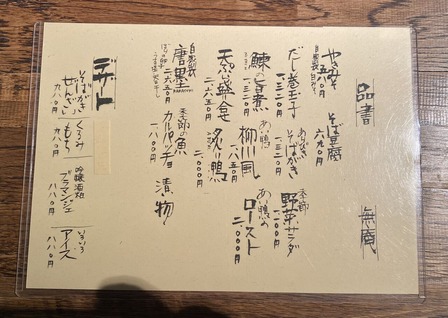 品書
無庵
やきみそ
五〇〇円
そば豆腐
六九〇円
だし巻玉子
一、三二〇円
あつあつ
そばがき
一、三二〇円
季節
野菜サラダ
一、二〇〇円
鰊の旨煮
一、三二〇円
あい鴨
柳川風
一、八五〇円
あい鴨の
ロースト
二、〇〇〇円
天ぷら盛合せ
二、六五〇円
炙り鴨
二、〇〇〇円
自家製
唐墨
二、六五〇円
季節の魚
カルパッチョ
一、八〇〇円
漬け物
デザート
そばがき
ぜんざい
九八〇円
くるみ
もち
九八〇円
吟醸酒粕
ブラマンジェ
八八〇円
いろいろ
アイス
八八〇円